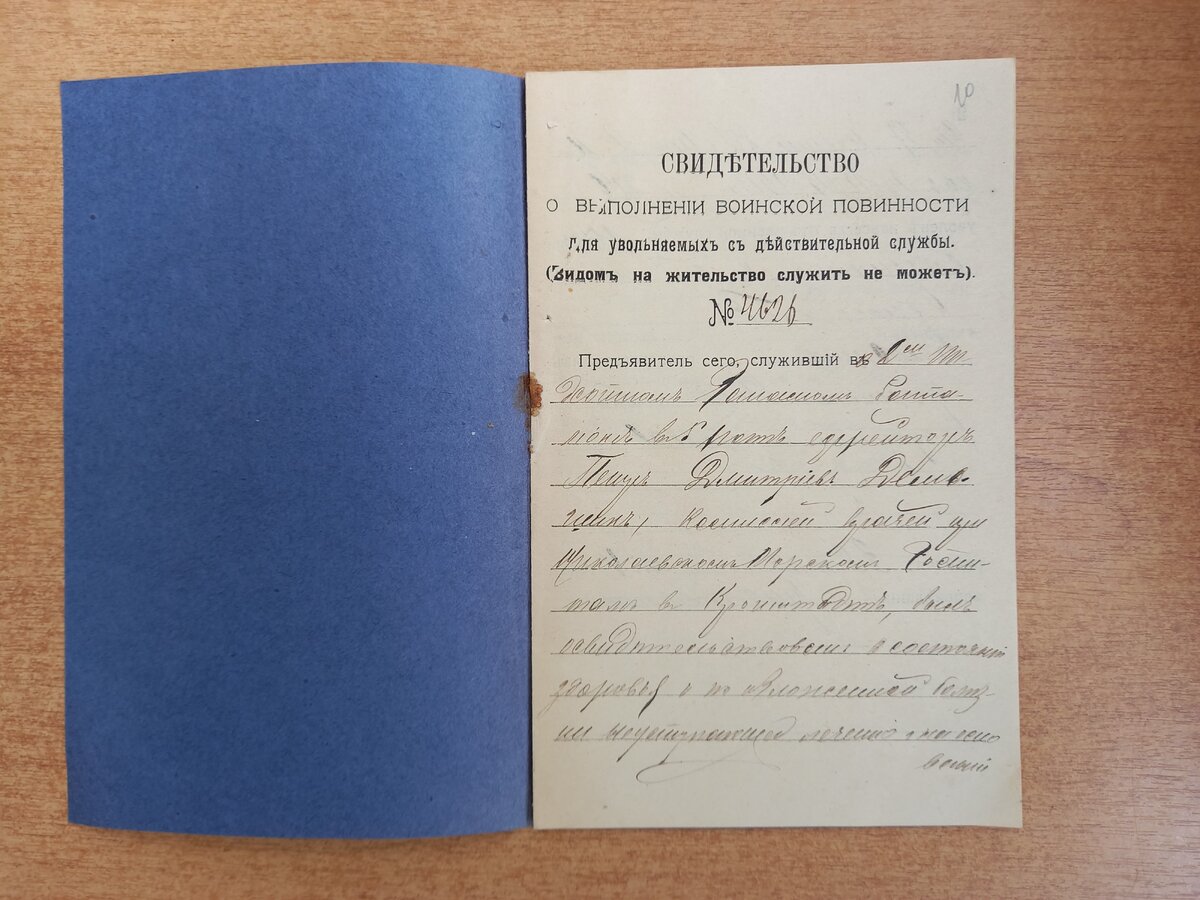 10
СВИДѢТЕЛЬСТВО
О ВЫПОЛНЕНІИ ВОИНСКОЙ ПОВИННОСТИ
для увольняемыхъ съ дѣйствительной службы.
(Видомъ на жительство служить не можетъ).
№ 4626
Предъявитель сего, служившій въ 2ом
баталь
іонѣ въ ротѣ ефрейторъ
Петръ Дмитріевъ
Комиссіей врачей при
Николаевскомъ Морскомъ Госпи-
талѣ въ Кронштадтѣ, былъ
освидѣтельствованъ въ состояніи
здоровья и по болѣз-
ни лечению и на осно
ваніи